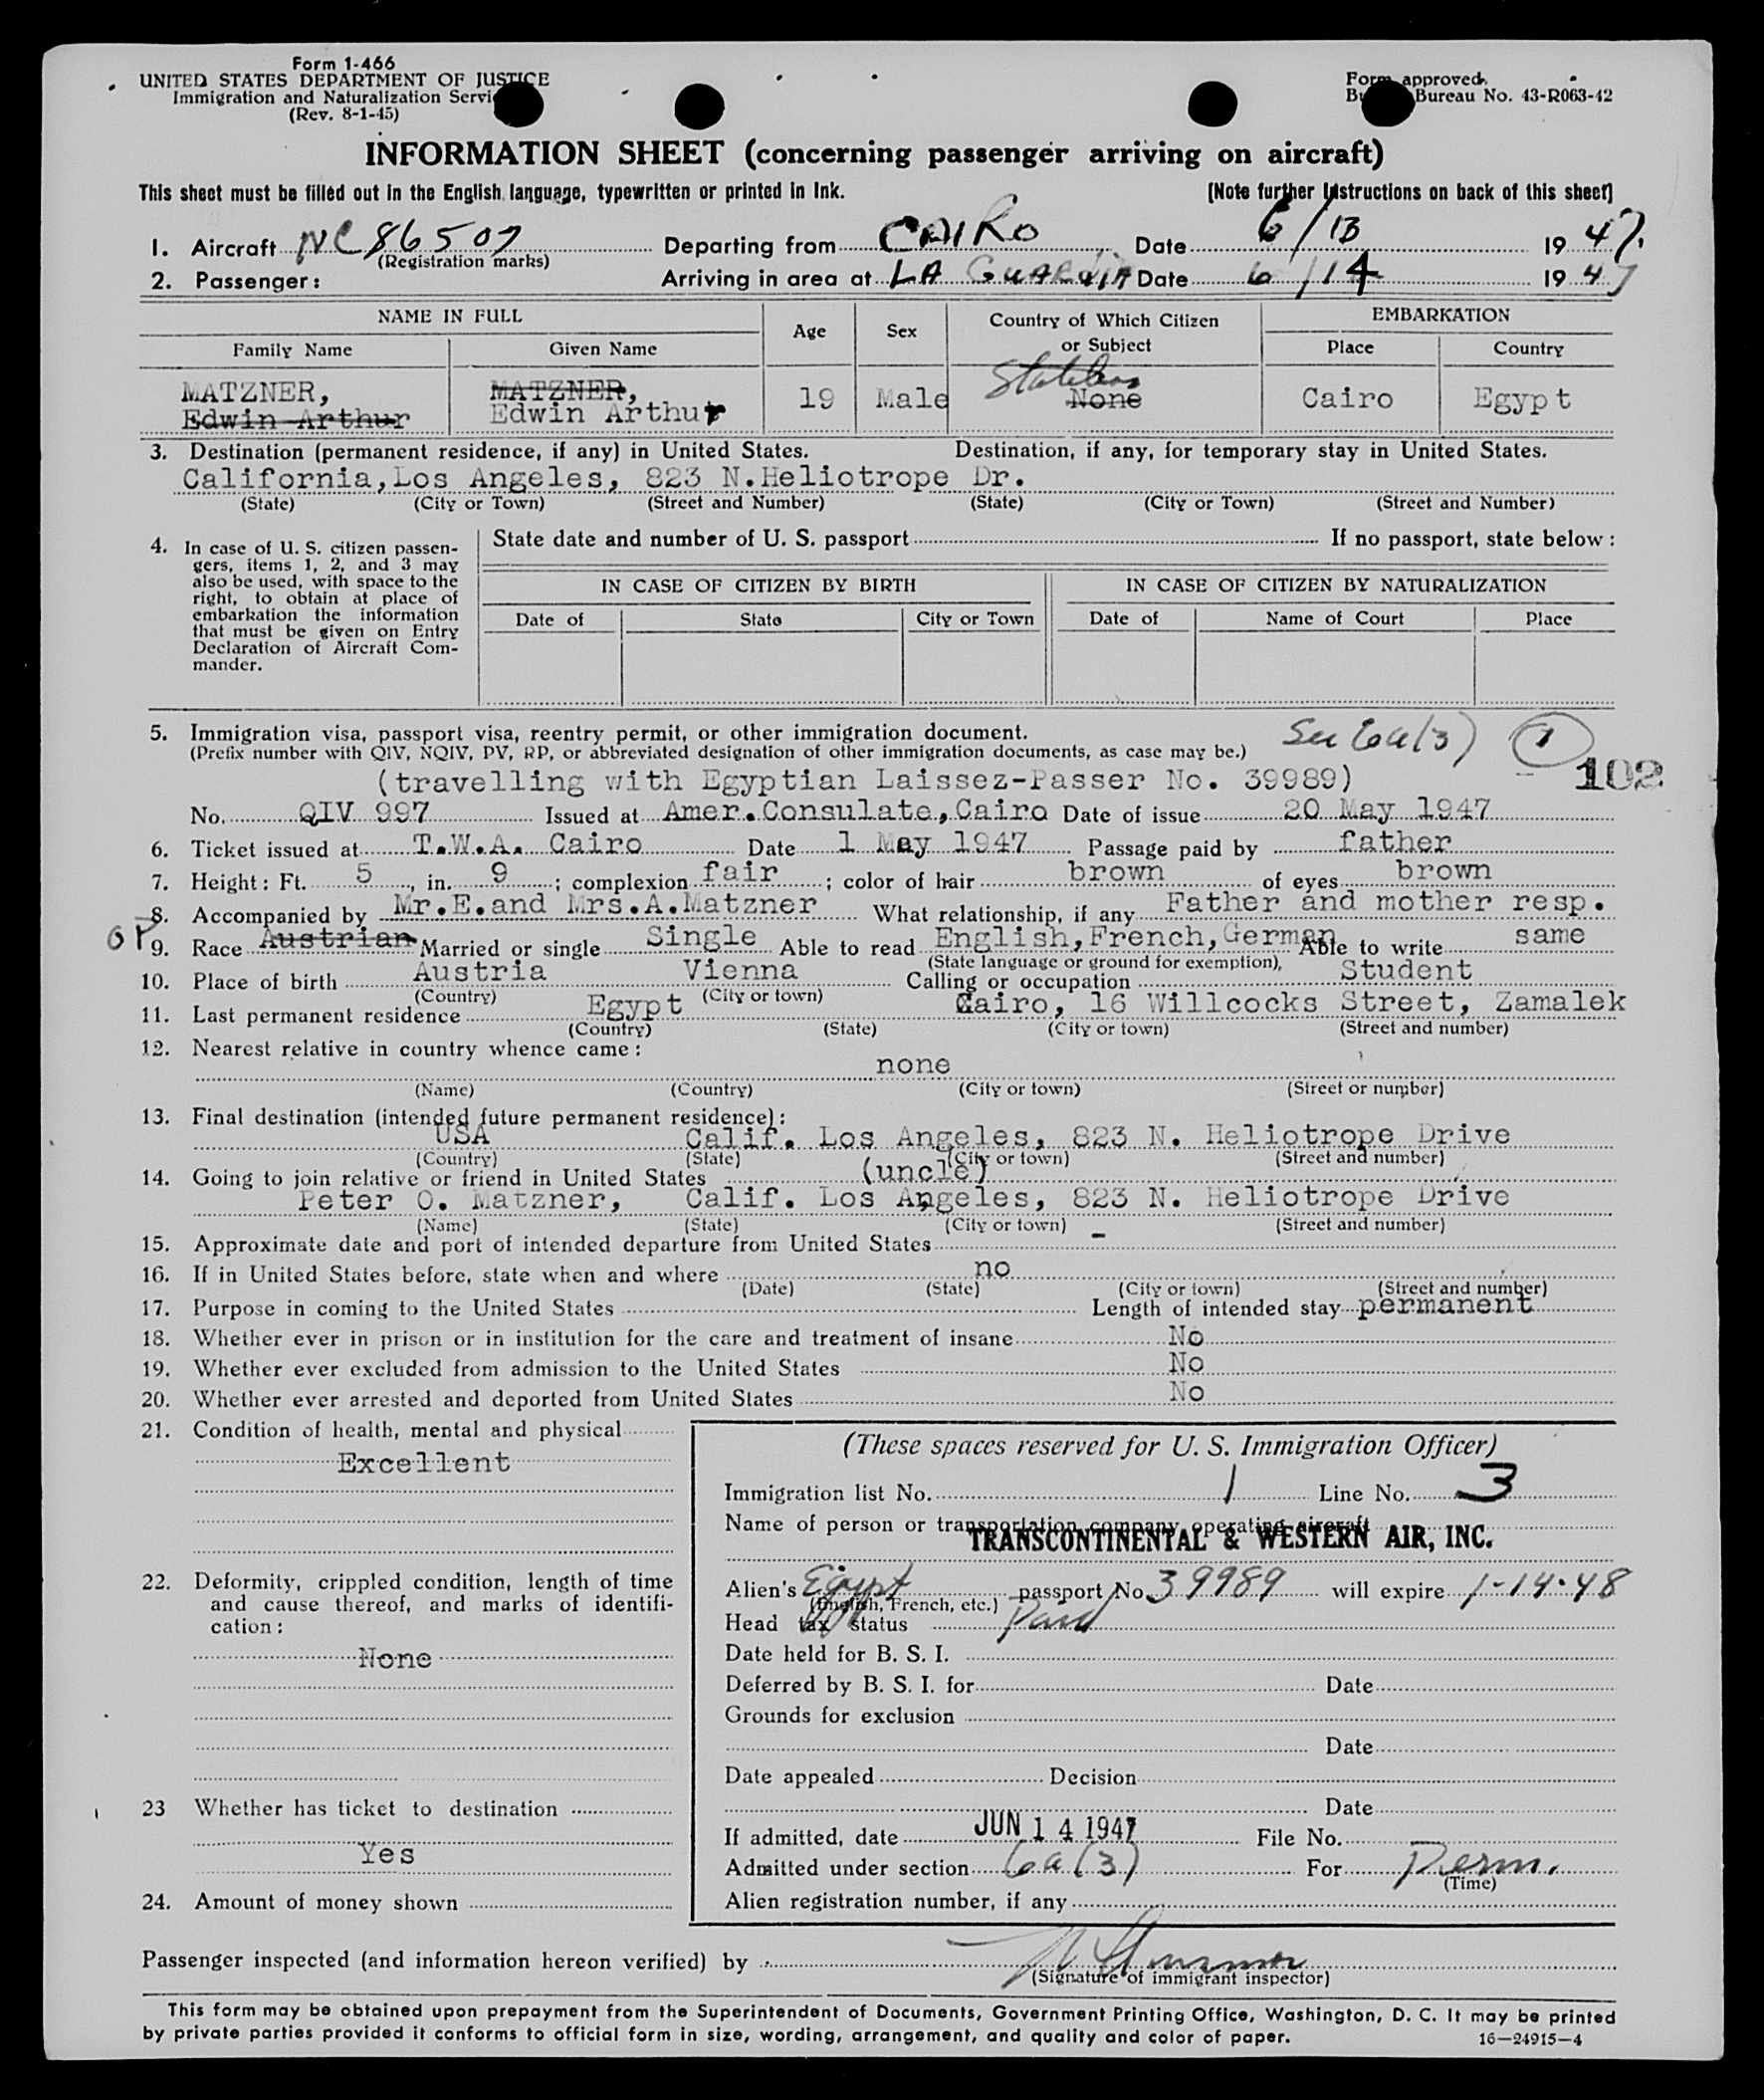 Form 1-466
UNITED STATES DEPARTMENT OF JUSTICE
Immigration and Naturalization Servi
(Rev. 8-1-45)
Form approved.
Bureau No. 43-R063-42
INFORMATION SHEET (concerning passenger arriving on aircraft)
This sheet must be filled out in the English language, typewritten or printed in Ink. [Note further Instructions on back of this sheet]
1. Aircraft NC 86507 Departing from CAIRO Date 6/13 1947.
(Registration marks)
2. Passenger: Arriving in area at LA GUARDIA Date 6/14 1947
NAME IN FULL Age Sex Country of Which Citizen or Subject EMBARKATION
Family Name Given Name Place Country
Stateless
MATZNER, MATZNER, 19 Male None Cairo Egypt
Edwin Arthur Edwin Arthur
3. Destination (permanent residence, if any) in United States. Destination, if any, for temporary stay in United States.
California, Los Angeles, 823 N.Heliotrope Dr.
(State) (City or Town) (Street and Number) (State) (City or Town) (Street and Number)
4. In case of U. S. citizen passen-
gers, items 1, 2, and 3 may
also be used, with space to the
right, to obtain at place of
embarkation the information
that must be given on Entry
Declaration of Aircraft Com-
mander.
State date and number of U. S. passport If no passport, state below:
IN CASE OF CITIZEN BY BIRTH IN CASE OF CITIZEN BY NATURALIZATION
Date of State City or Town Date of Name of Court Place
5. Immigration visa, passport visa, reentry permit, or other immigration document. Sec 6a(3) 1
(Prefix number with QIV, NQIV, PV, RP, or abbreviated designation of other immigration documents, as case may be.)
(travelling with Egyptian Laissez-Passer No. 39989) 102
No. QIV 997 Issued at Amer.Consulate,Cairo Date of issue 20 May 1947
6. Ticket issued at T.W.A. Cairo Date 1 May 1947 Passage paid by father
7. Height: Ft. 5, in. 9; complexion fair; color of hair brown of eyes brown
8. Accompanied by Mr.E.and Mrs.A.Matzner What relationship, if any Father and mother resp.
9. Race Austrian Married or single Single Able to read English,French,German Able to write same
(State language or ground for exemption),
10. Place of birth Austria Vienna Calling or occupation Student
(Country) (City or town)
11. Last permanent residence Egypt Cairo, 16 Willcocks Street, Zamalek
(Country) (State) (City or town) (Street and number)
12. Nearest relative in country whence came:
none
(Name) (Country) (City or town) (Street or number)
13. Final destination (intended future permanent residence):
USA Calif. Los Angeles, 823 N. Heliotrope Drive
(Country) (State) (City or town) (Street and number)
14. Going to join relative or friend in United States (uncle)
Peter O. Matzner, Calif. Los Angeles, 823 N. Heliotrope Drive
(Name) (State) (City or town) (Street and number)
15. Approximate date and port of intended departure from United States -
16. If in United States before, state when and where no
(Date) (State) (City or town) (Street and number)
17. Purpose in coming to the United States Length of intended stay permanent
18. Whether ever in prison or in institution for the care and treatment of insane No
19. Whether ever excluded from admission to the United States No
20. Whether ever arrested and deported from United States No
21. Condition of health, mental and physical
Excellent
22. Deformity, crippled condition, length of time
and cause thereof, and marks of identifi-
cation:
None
23 Whether has ticket to destination
Yes
24. Amount of money shown
(These spaces reserved for U. S. Immigration Officer)
Immigration list No. 1 Line No. 3
Name of person or transportation company operating aircraft
TRANSCONTINENTAL & WESTERN AIR, INC.
Alien's Egypt passport No. 39989 will expire 1-14-48
(English, French, etc.)
Head tax status Paid
Date held for B. S. I.
Deferred by B. S. I. for Date
Grounds for exclusion
Date
Date appealed Decision
Date
If admitted, date JUN 14 1947 File No.
Admitted under section 6a(3) For Perm.
(Time)
Alien registration number, if any
Passenger inspected (and information hereon verified) by
(Signature of immigrant inspector)
This form may be obtained upon prepayment from the Superintendent of Documents, Government Printing Office, Washington, D. C. It may be printed
by private parties provided it conforms to official form in size, wording, arrangement, and quality and color of paper. 16—24915-4